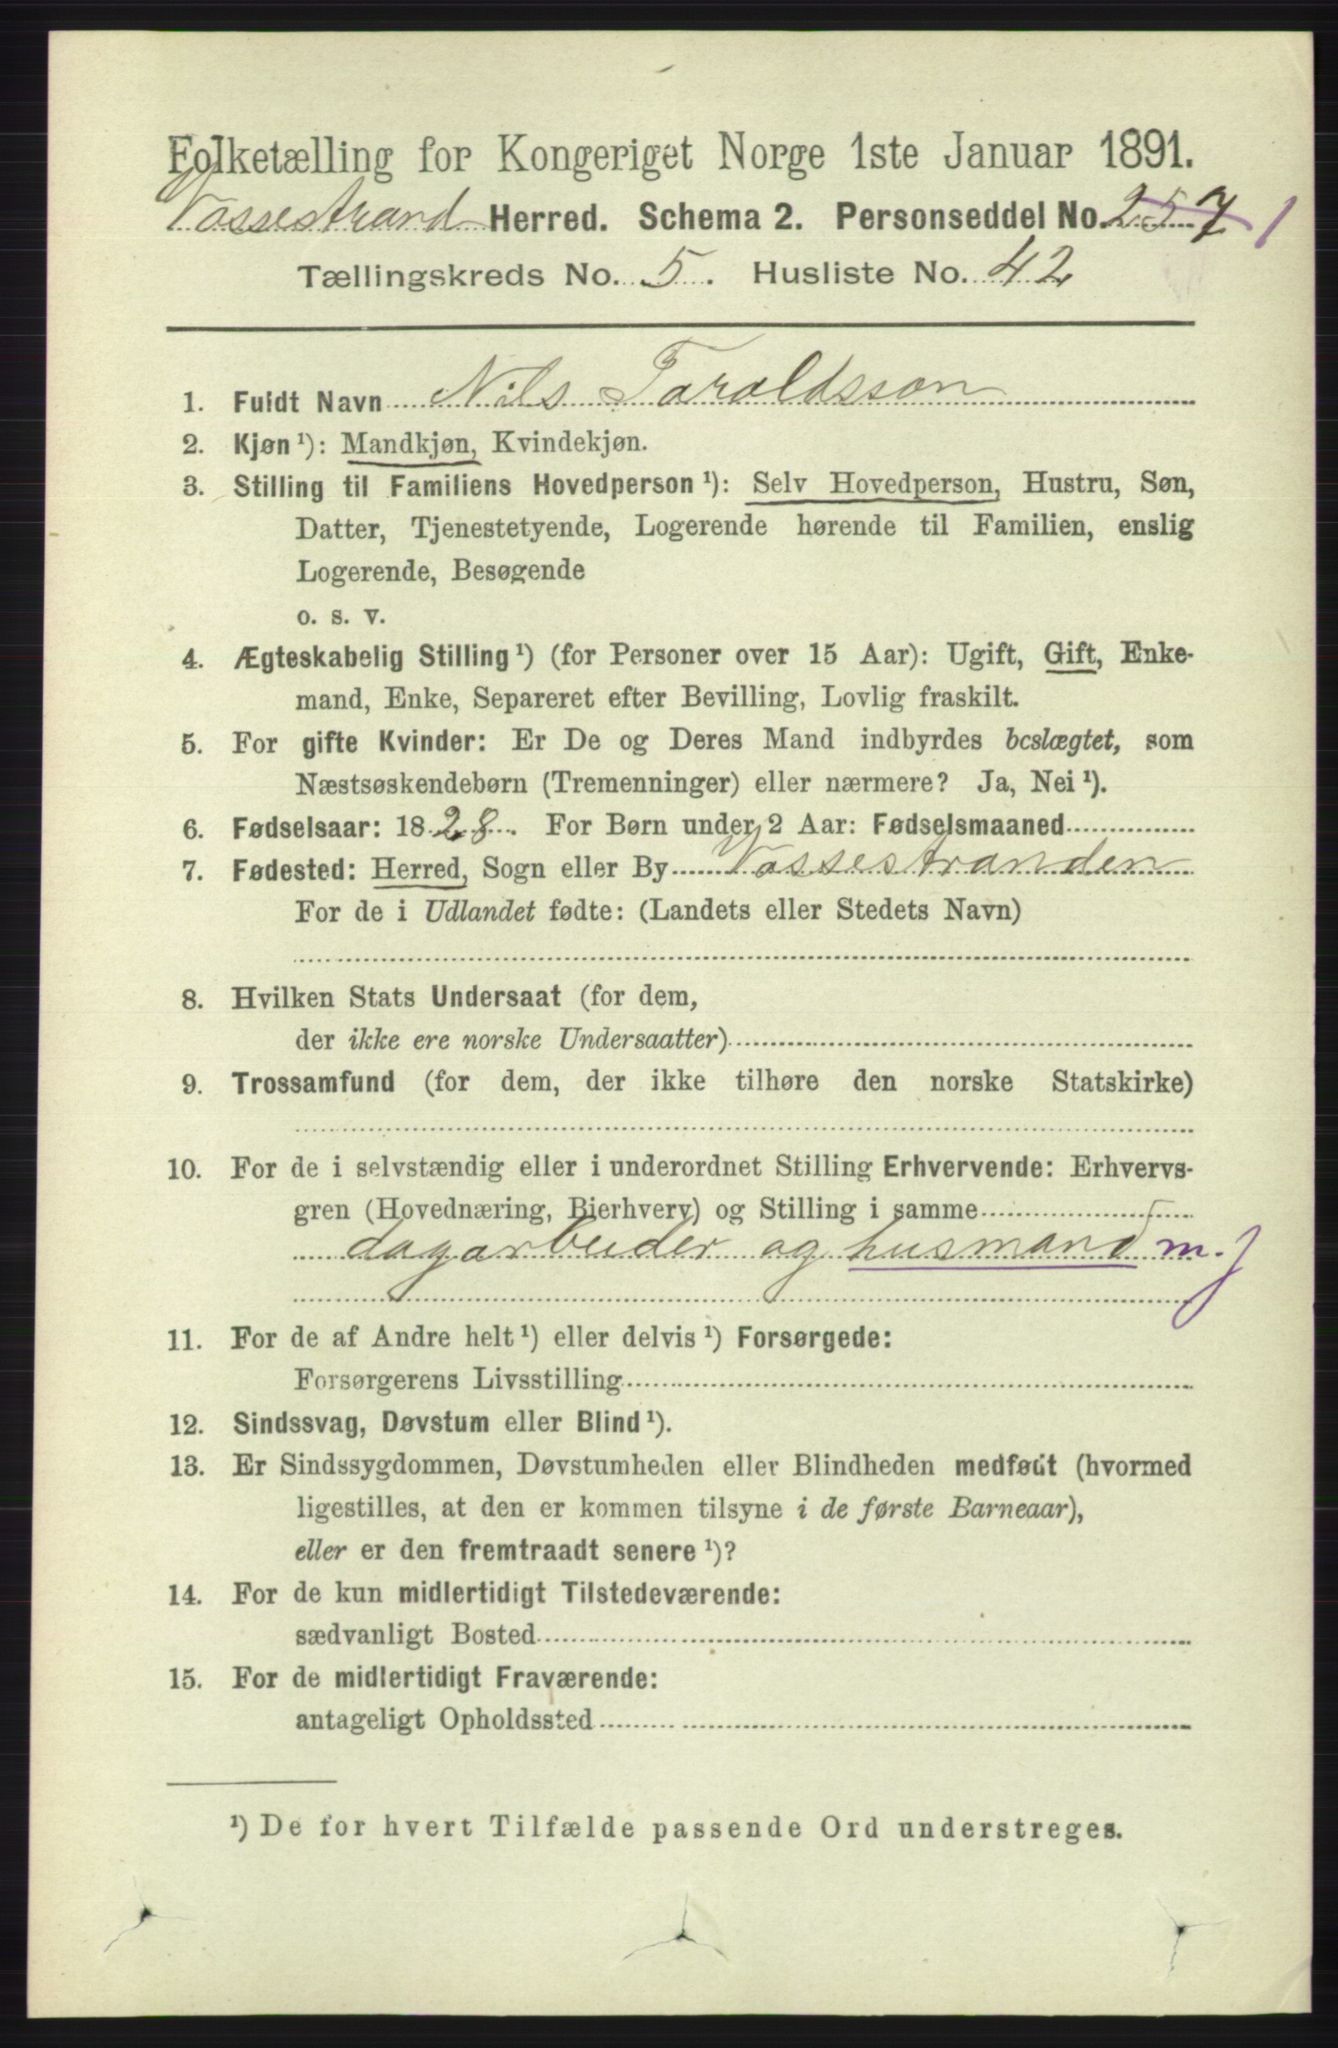 Folketælling for Kongeriget Norge 1ste Januar 1891.
Vossestrand Herred. Schema 2. Personseddel No. 257 1
Tællingskreds No. 5. Husliste No. 42
1. Fuldt Navn Nils Taraldsson
2. Kjøn ¹): Mandkjøn, Kvindekjøn.
3. Stilling til Familiens Hovedperson ¹): Selv Hovedperson, Hustru, Søn,
Datter, Tjenestetyende, Logerende hørende til Familien, enslig
Logerende, Besøgende
o. s. v.
4. Ægteskabelig Stilling ¹) (for Personer over 15 Aar): Ugift, Gift, Enke-
mand, Enke, Separeret efter Bevilling, Lovlig fraskilt.
5. For gifte Kvinder: Er De og Deres Mand indbyrdes beslægtet, som
Næstsøskendebørn (Tremenninger) eller nærmere? Ja, Nei ¹).
6. Fødselsaar: 1828. For Børn under 2 Aar: Fødselsmaaned
7. Fødested: Herred, Sogn eller By Vossestranden
For de i Udlandet fødte: (Landets eller Stedets Navn)
8. Hvilken Stats Undersaat (for dem,
der ikke ere norske Undersaatter)
9. Trossamfund (for dem, der ikke tilhøre den norske Statskirke)
10. For de i selvstændig eller i underordnet Stilling Erhvervende: Erhvervs-
gren (Hovednæring, Bierhverv) og Stilling i samme
dagarbeider og husmand m. J
11. For de af Andre helt ¹) eller delvis ¹) Forsørgede:
Forsørgerens Livsstilling
12. Sindssvag, Døvstum eller Blind ¹).
13. Er Sindssygdommen, Døvstumheden eller Blindheden medfødt (hvormed
ligestilles, at den er kommen tilsyne i de første Barneaar),
eller er den fremtraadt senere ¹)?
14. For de kun midlertidigt Tilstedeværende:
sædvanligt Bosted
15. For de midlertidigt Fraværende:
antageligt Opholdssted
¹) De for hvert Tilfælde passende Ord understreges.